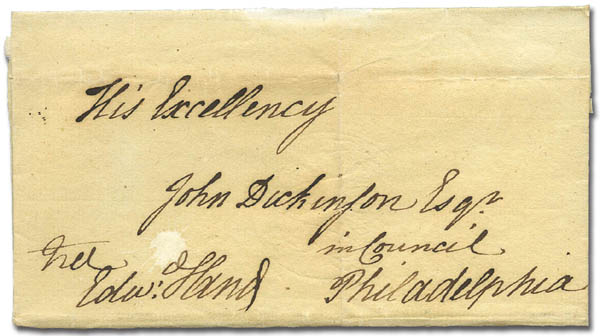 His Excellency
John Dickinson Esqr
in Council
Philadelphia
free
Edw: Hand